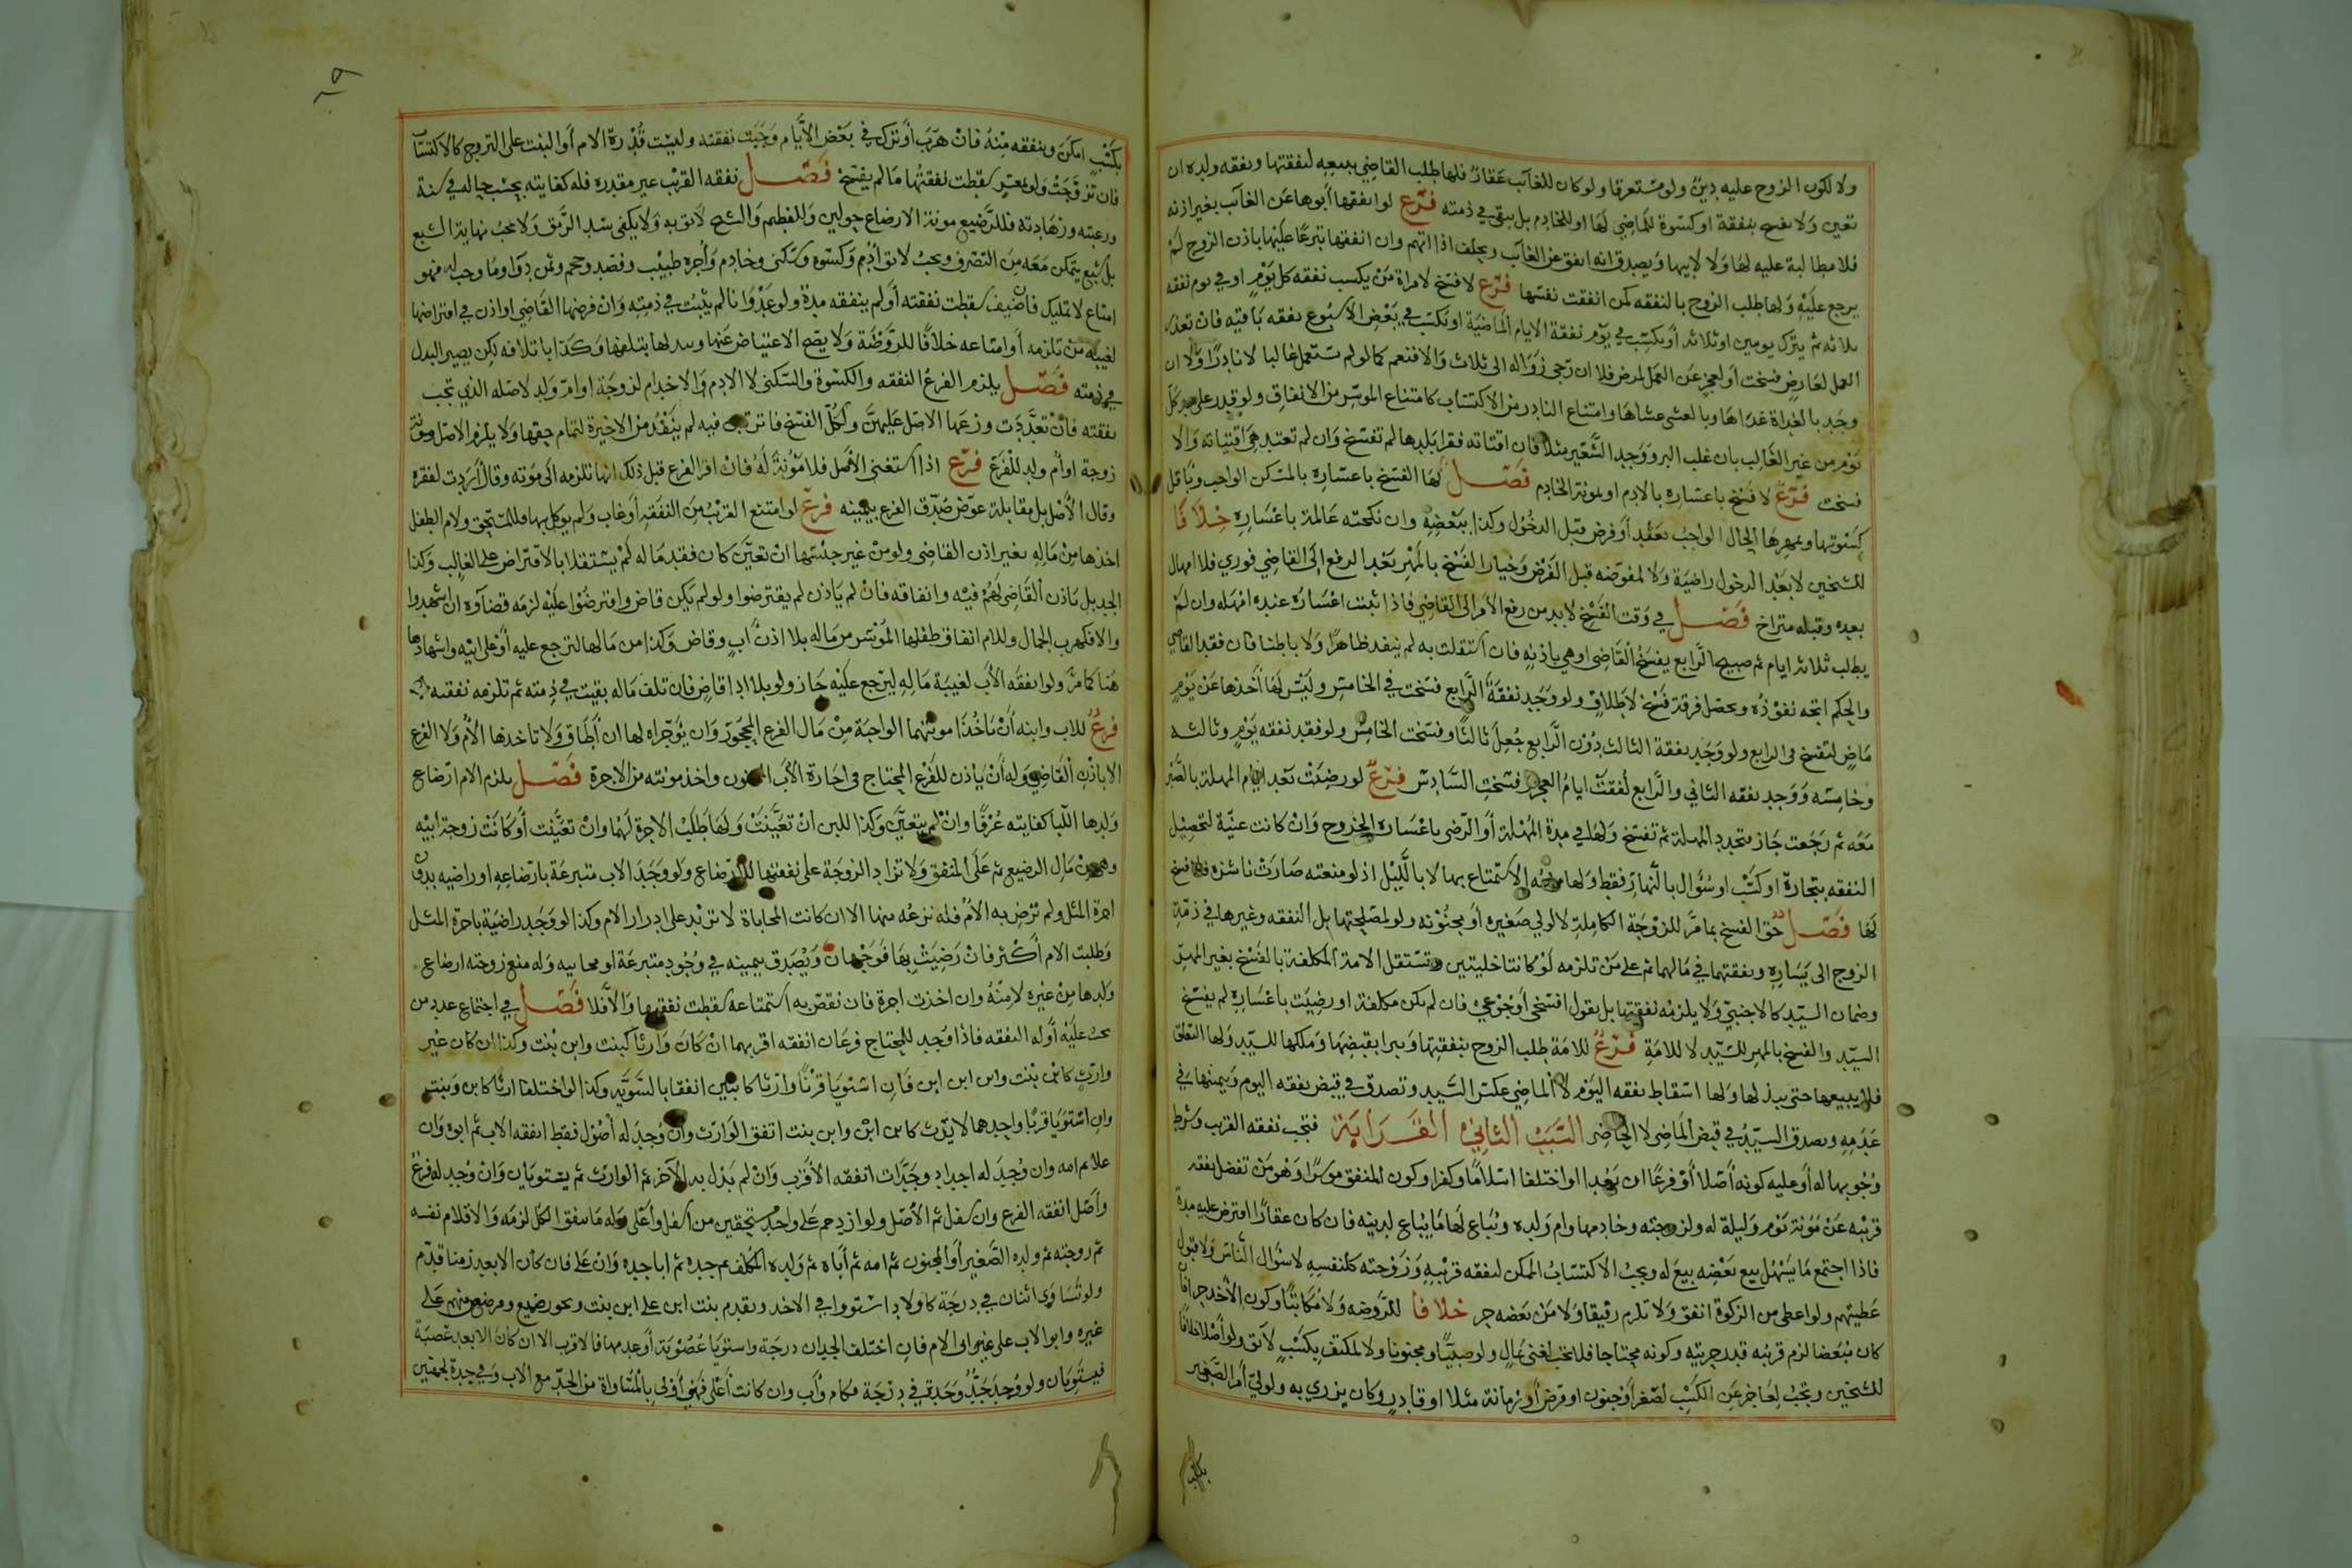 ولا لكون الزوج عليه دين ولو مستغرقا ولو كان للغائب عقار فلها طلب القاضي ببيعه لنفقتها ونفقه ولده ان
تعين ولا تفسخ بنفقة او كسوة للماضي لها او للخادم بل يبقى في ذمته فرع لو انفقها أبوها عن الغائب بغير اذنه
فلا مطالبة عليه لها ولا لابيها ويصدق انه انفق عن الغائب ويحلف اذا اتهم وان انفقها تبرعا عليها باذن الزوج لم
يرجع عليه ولها طلب الزوج بالنفقه كمن انفقت نفسها فرع لا فسخ لامراة من يكسب نفقه كل يوم او في يوم نفقه
ثلاثه ثم يترك يومين او ثلاثه أو يكتسب في يوم نفقة الايام الماضية او تكسب في بعض الاسبوع نفقه باقيه فان تعذر
العمل لعارض فسخت أو لعجز عن العمل لمرض فلا ان رجى زواله الى ثلاث والا فنعم كما لو لم تستعمل غالبا لا نادرا ولا ان
وجد بالغداة غداها وبالعشى عشاها وامتناع النادر من الاكتساب كامتناع الموسر من الانفاق ولو قدر على مد كل
يوم من غير الغالب بان غلب البر ووجد الشعير مثلا فان اقتاته فقرا بلدها لم تفسخ وان لم تعتد هي اقتياته والا
فسخت فرع لا فسخ باعساره بالادم او بمونة الخادم فصل لها الفسخ باعساره بالمسكن الواجب وباقل
كسوتها وبمهرها الحال الواجب بعقد أو فرض قبل الدخول وكذا ببعضه وان نكحته عالمة باعساره خلافا
للشيخين لا بعد الدخول راضية ولا لمفوضه قبل الفرض وخيار الفسخ بالمهر بعد الرفع الى القاضي فوري فلا امهال
بعده وقبله متراخ فصل في وقت الفسخ لا بد من رفع الامر الى القاضي فاذا ثبت اعساره عنده امهله وان لم
يطلب ثلاثة ايام ثم صبيحة الرابع يفسخ القاضي او هي باذنه فان استقلت به لم ينفد ظاهرا ولا باطنا فان فقد القاضي
والحكم اتجه نفوذه ويحصل فرقة فسخ لا طلاق ولو وجد نفقة الرابع فسخت في الخامس وليس لها أخذها عن يوم
ماض لتفسخ في الرابع ولو وجد نفقة الثالث دون الرابع جعل ثالثا وفسخت الخامس ولو فقد نفقه يوم وثالثه
وخامسه ووجد نفقه الثاني والرابع لفقت ايام العجز فسخت السادس فرع لو رضيت بعد ايام المهلة بالصبر
معه ثم رجعت جاز بتجدد المهلة ثم تفسخ ولها في مدة المهلة أو الرضى باعساره الخروج وان كانت غنية لتحصيل
النفقه بتجارة او كسب او سؤال بالنهار فقط ولها منعه الاستمتاع بها لا بالليل اذ لو منعته صارت ناشزه فلا فسخ
لها فصل حق الفسخ بما مر للزوجة الكاملة لا لولي صغيره أو مجنونه ولو لمصلحتها بل النفقه وغيرها في ذمة
الزوج الى يساره ونفقتهما في مالهما ثم على من تلزمه لو كانتا خليتين وتستقل الامة المكلفة بالفسخ بغير المهر
وضمان السيد كالاجنبي ولا يلزمه نفقتها بل يقول افسخي أو جوعي فان لم تكن مكلفة او رضيت باعساره لم يفسخ
السيد والفسخ بالمهر للسيد لا للامة فرع للامة طلب الزوج بنفقتها ويبرا بقبضها وملكها للسيد ولها التعلق
فلا يبيعها حتى يبذ لها ولها اسقاط نفقه اليوم لا الماضي عكس السيد وتصدق في قبض نفقه اليوم وبيمينها في
عدمه ويصدق السيد في قبض الماضي لا الحاضر السبب الثاني القرابة فتجب نفقه القريب وشرط
وجوبها له أو عليه كونه أصلا أو فرعا ان بعد او اختلفا اسلاما وكفرا وكون المنفق موسرا وهو من تفضل نفقه
قريبه عن مونة يوم وليلة له ولزوجته وخادمها وام ولده ويباع لها ما يباع لدينه فان كان عقارا اقترض عليه مدة
فاذا اجتمع ما يسهل بيع بعضه بيع له ويجب الاكتساب الممكن لنفقه قريبه وزوجته كلنفسه لا سؤال الناس ولا قبول
عطيتهم ولو اعطى من الزكوة انفق ولا تلزم رقيقا ولا من بعضه حر خلافا للروضه ولا مكاتبا وكون الآخذ حرا فان
كان مبعضا لزم قريبه قدر حريته وكونه محتاجا فلا تجب لغني بمال ولو صبيا ومجنونا ولا لمكتف بكسب لائق ولو أصلا خلافا
للشيخين وتجب لعاجز عن الكسب لصغر أو جنون او مرض أو زمانة مثلا او قادر وكان يزري به ولولي أمر الصغير
بكسب
بكسب امكن وينفقه منه فان هرب أو ترك في بعض الايام وجبت نفقته وليست قدرة الام أو البنت على التزوج كالاكتساب
فان تزوجت ولو بمعسر سقطت نفقتها ما لم يفسخ فصل نفقه القريب غير مقدره فله كفايته بحسب حاله في سنه
ورغبته وزهادته فللرضيع مونة الارضاع حولين وللفطيم والشيخ لائق به ولا يكفى سد الرمق ولا تجب نهاية الشبع
بل شبع يتمكن معه من التصرف ويجب لائق أدم وكسوه وسكنى وخادم وأجرة طبيب وفصد وحجم وثمن دوا وما وجب له فهو
امتاع لا تمليك فان ضيف سقطت نفقته أو لم ينفقه مدة ولو عدوانا لم يثبت في ذمته وان فرضها القاضي او اذن في اقتراضها
لغيبة من تلزمه أو امتناعه خلافا للروضة ولا يصح الاعتياض عنها وبدلها بتلفها وكذا باتلافه لكن يصير البدل
في ذمته فصل يلزم الفرع النفقه والكسوة والسكنى لا الادم والاخدام لزوجة او ام ولد لاصله الذي تجب
نفقته فان تعددت وزعها الاصل عليهن ولكل الفسخ فان ترتبن فيه لم ينفذ من الاخيرة لتمام حقها ولا يلزم الاصل مونة
زوجة او أم ولد للفرع فرع اذا استغنى الاصل فلا مؤنة له فان اقر الفرع قبل ذلك انها تلزمه الى موته وقال أردت لفقره
وقال الاصل بل مقابلة عوض صدق الفرع بيمينه فرع لو امتنع القريب من النفقه أو غاب ولم يوكل بها فللمستحق ولام الطفل
اخذها من ماله بغير اذن القاضي ولو من غير جنسها ان تعين كان فقد ماله لم يستقلا بالاقتراض على الغالب وكذا
الجد بل باذن القاضي لهم فيه وانفاقه فان لم ياذن لم يقترضوا ولو لم يكن قاض واقترضوا عليه لزمه قضاؤه ان اشهدوا
والا فكهرب الجمال وللام انفاق طفلها الموسر من ماله بلا اذن أب وقاض وكذا من مالها لترجع عليه أو على ابيه واشهادها
هنا كما مر ولو انفقه الأب لغيبة ماله ليرجع عليه جاز ولو بلا اذن قاض فان تلف ماله بقيت في ذمته ثم تلزمه نفقته
فرع للاب وابنه أن ياخذا مونتهما الواجبة من مال الفرع المحجور وان يؤجراه لها ان أطاق ولا تاخذها الأم ولا الفرع
الا باذن القاضي وله أن ياذن للفرع المحتاج في اجارة الأب المجنون واخذ مونته من الاجرة فصل يلزم الام ارضاع
ولدها اللبا كفايته عرفا وان لم يتعين وكذا اللبن ان تعينت ولها طلب الاجرة لهما وان تعينت أو كانت زوجة ابيه
وهي من مال الرضيع ثم على المنفق ولا تزاد الزوجة على نفقتها للارضاع ولو وجد الاب متبرعة بارضاعه او راضيه بدون
اجرة المثل ولم ترض به الأم فله نزعه منها الا ان كانت المحاباة لا تزيد على ادرار الام وكذا لو وجد راضية باجرة المثل
وطلبت الام أكثر فان رضيت بها فوجهان ويصدق بيمينه في وجود متبرعة او محابيه وله منع زوجته ارضاع
ولدها من غيره لا منه وان اخذت اجرة فان نقص به استمتاعه سقطت نفقتها والا فلا فصل في اجتماع عدد من
تجب عليه أو له النفقه فاذا وجد للمحتاج فرعان انفقه اقربهما ان كان وارثا كبنت وابن بنت وكذا ان كان غير
وارث كابن بنت وابن ابن ابن فان استويا قربا وارثا كابنين انفقا بالسوية وكذا لو اختلفا ارثا كابن وبنت
وان استويا قربا واحدهما لا يرث كابن ابن وابن بنت انفق الوارث وان وجد له أصول فقط انفقه الاب ثم ابوه وان
علا ثم امه وان وجد له اجداد وجدات انفقه الأقرب وان لم يدل به الآخر ثم الوارث ثم يستويان وان وجد له فرع
وأصل انفقه الفرع وان سفل ثم الأصل ولو ازدحم على واحد مستحقين من اسفل وأعلى وله ما ينفق الكل لزمه والا قدم نفسه
ثم زوجته ثم ولده الصغير أو المجنون ثم امه ثم أباه ثم ولده المكلف ثم جده ثم ابا جده وان علا فان كان الابعد زمنا قدم
ولو تساوى اثنان في درجة كاولاد استووا في الاخذ ويقدم بنت ابن على ابن بنت ونحو رضيع ومرضع منهم على
غيره وابو الاب على غيره ابي الام فان اختلف الجدان درجة واستويا عصوبة أو عدمها فالاقرب الا ان كان الابعد عصبة
فيستويان ولو وجد جد وجدة في درجة كام وأب وان كانت أعلى فهي أولى بالمساواة من الجد مع الاب وفي جدة لجهتين